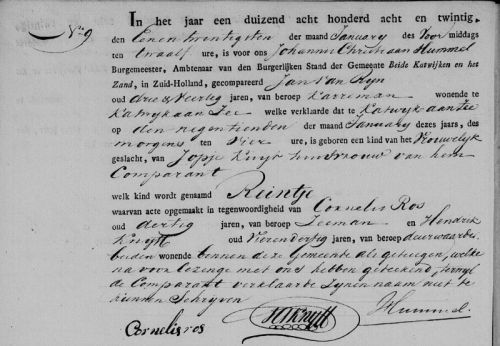 No 9
In het jaar een duizend acht honderd acht en twintig,
den Eenentwintigsten der maand January des Voor middags
ten twaalf ure, is voor ons Johannes Christiaan Hummel
Burgemeester, Ambtenaar van den Burgerlijken Stand der Gemeente Beide Katwijken en het
Zand, in Zuid-Holland, gecompareerd Jan van Rijn
oud drie & Veertig jaren, van beroep Karreman wonende te
Katwyk aan Zee welke verklaarde dat te Katwyk aan Zee
op den negentienden der maand January dezes jaars, des
morgens ten Vier ure, is geboren een kind van het Vrouwelyk
geslacht, van Jopje Kuyt huisvrouw van hem
Comparant
welk kind wordt genaamd Reintje
waarvan acte opgemaakt in tegenwoordigheid van Cornelis Ros
oud dertig jaren, van beroep Zeeman en Hendrik
Knyff oud Vierendertig jaren, van beroep deurwaarder
beiden wonende binnen deze Gemeente als getuigen, welke
na voorlezenge met ons hebben geteekend, terwyl
de Comparant verklaarde zynen naam niet te
kunnen Schryven
HKnyff
Hummel
Cornelis ros